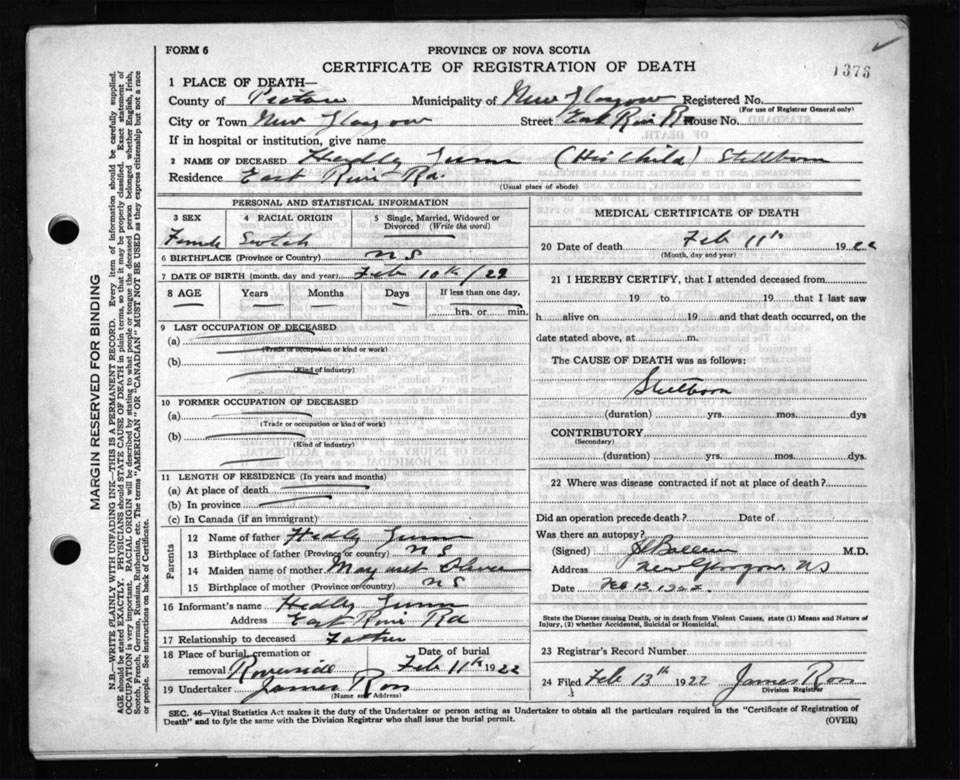 FORM 6
PROVINCE OF NOVA SCOTIA
CERTIFICATE OF REGISTRATION OF DEATH
1376
1 PLACE OF DEATH—
County of Pictou Municipality of New Glasgow Registered No.
(For use of Registrar General only)
City or Town New Glasgow Street East River Rd House No.
If in hospital or institution, give name
2 NAME OF DECEASED Hedly (His Child) Stillborn
Residence East River Rd.
(Usual place of abode)
PERSONAL AND STATISTICAL INFORMATION
3 SEX 4 RACIAL ORIGIN 5 Single, Married, Widowed or Divorced (Write the word)
Female Scotch
6 BIRTHPLACE (Province or Country) N S
7 DATE OF BIRTH (month, day and year) Feb 10th/22
8 AGE Years Months Days If less than one day,
hrs. or min.
9 LAST OCCUPATION OF DECEASED
(a)
(Trade or occupation or kind or work)
(b)
(Kind of industry)
10 FORMER OCCUPATION OF DECEASED
(a)
(Trade or occupation or kind of work)
(b)
(Kind of industry)
11 LENGTH OF RESIDENCE (In years and months)
(a) At place of death
(b) In province
(c) In Canada (if an immigrant)
Parents
12 Name of father Hedly
13 Birthplace of father (Province or country) N S
14 Maiden name of mother Margaret
15 Birthplace of mother (Province or country) N S
16 Informant's name Hedly
Address East River Rd
17 Relationship to deceased Father
18 Place of burial, cremation or removal Riverside Date of burial Feb 11th 1922
19 Undertaker James Ross
(Name and Address)
MEDICAL CERTIFICATE OF DEATH
20 Date of death Feb 11th 1922
(Month, day and year)
21 I HEREBY CERTIFY, that I attended deceased from
19 to 19 that I last saw
h alive on 19 and that death occurred, on the
date stated above, at m.
The CAUSE OF DEATH was as follows:
Stillborn
(duration) yrs. mos. dys
CONTRIBUTORY
(Secondary)
(duration) yrs. mos. dys.
22 Where was disease contracted if not at place of death?
Did an operation precede death? Date of
Was there an autopsy?
(Signed) M.D.
Address New Glasgow, NS
Date Feb 13, 1922.
State the Disease causing Death, or in death from Violent Causes, state (1) Means and Nature of
Injury, (2) whether Accidental, Suicidal or Homicidal.
23 Registrar's Record Number
24 Filed Feb 13th 1922 James Ross
Division Registrar
SEC. 46—Vital Statistics Act makes it the duty of the Undertaker or person acting as Undertaker to obtain all the particulars required in the "Certificate of Registration of
Death" and to fyle the same with the Division Registrar who shall issue the burial permit.
(OVER)
MARGIN RESERVED FOR BINDING
N.B.—WRITE PLAINLY WITH UNFADING INK—THIS IS A PERMANENT RECORD. Every item of information should be carefully supplied.
AGE should be stated EXACTLY. PHYSICIANS should STATE CAUSE OF DEATH in plain terms, so that it may be properly classified. Exact statement of
OCCUPATION is very important. RACIAL ORIGIN will be described by stating to what people or tongue the deceased person belonged whether English, Irish,
Scotch, French, German, Russian, Ruthenian, etc. The terms "AMERICAN" OR "CANADIAN" MUST NOT BE USED as they express citizenship but not a race
or people. See instructions on back of Certificate.